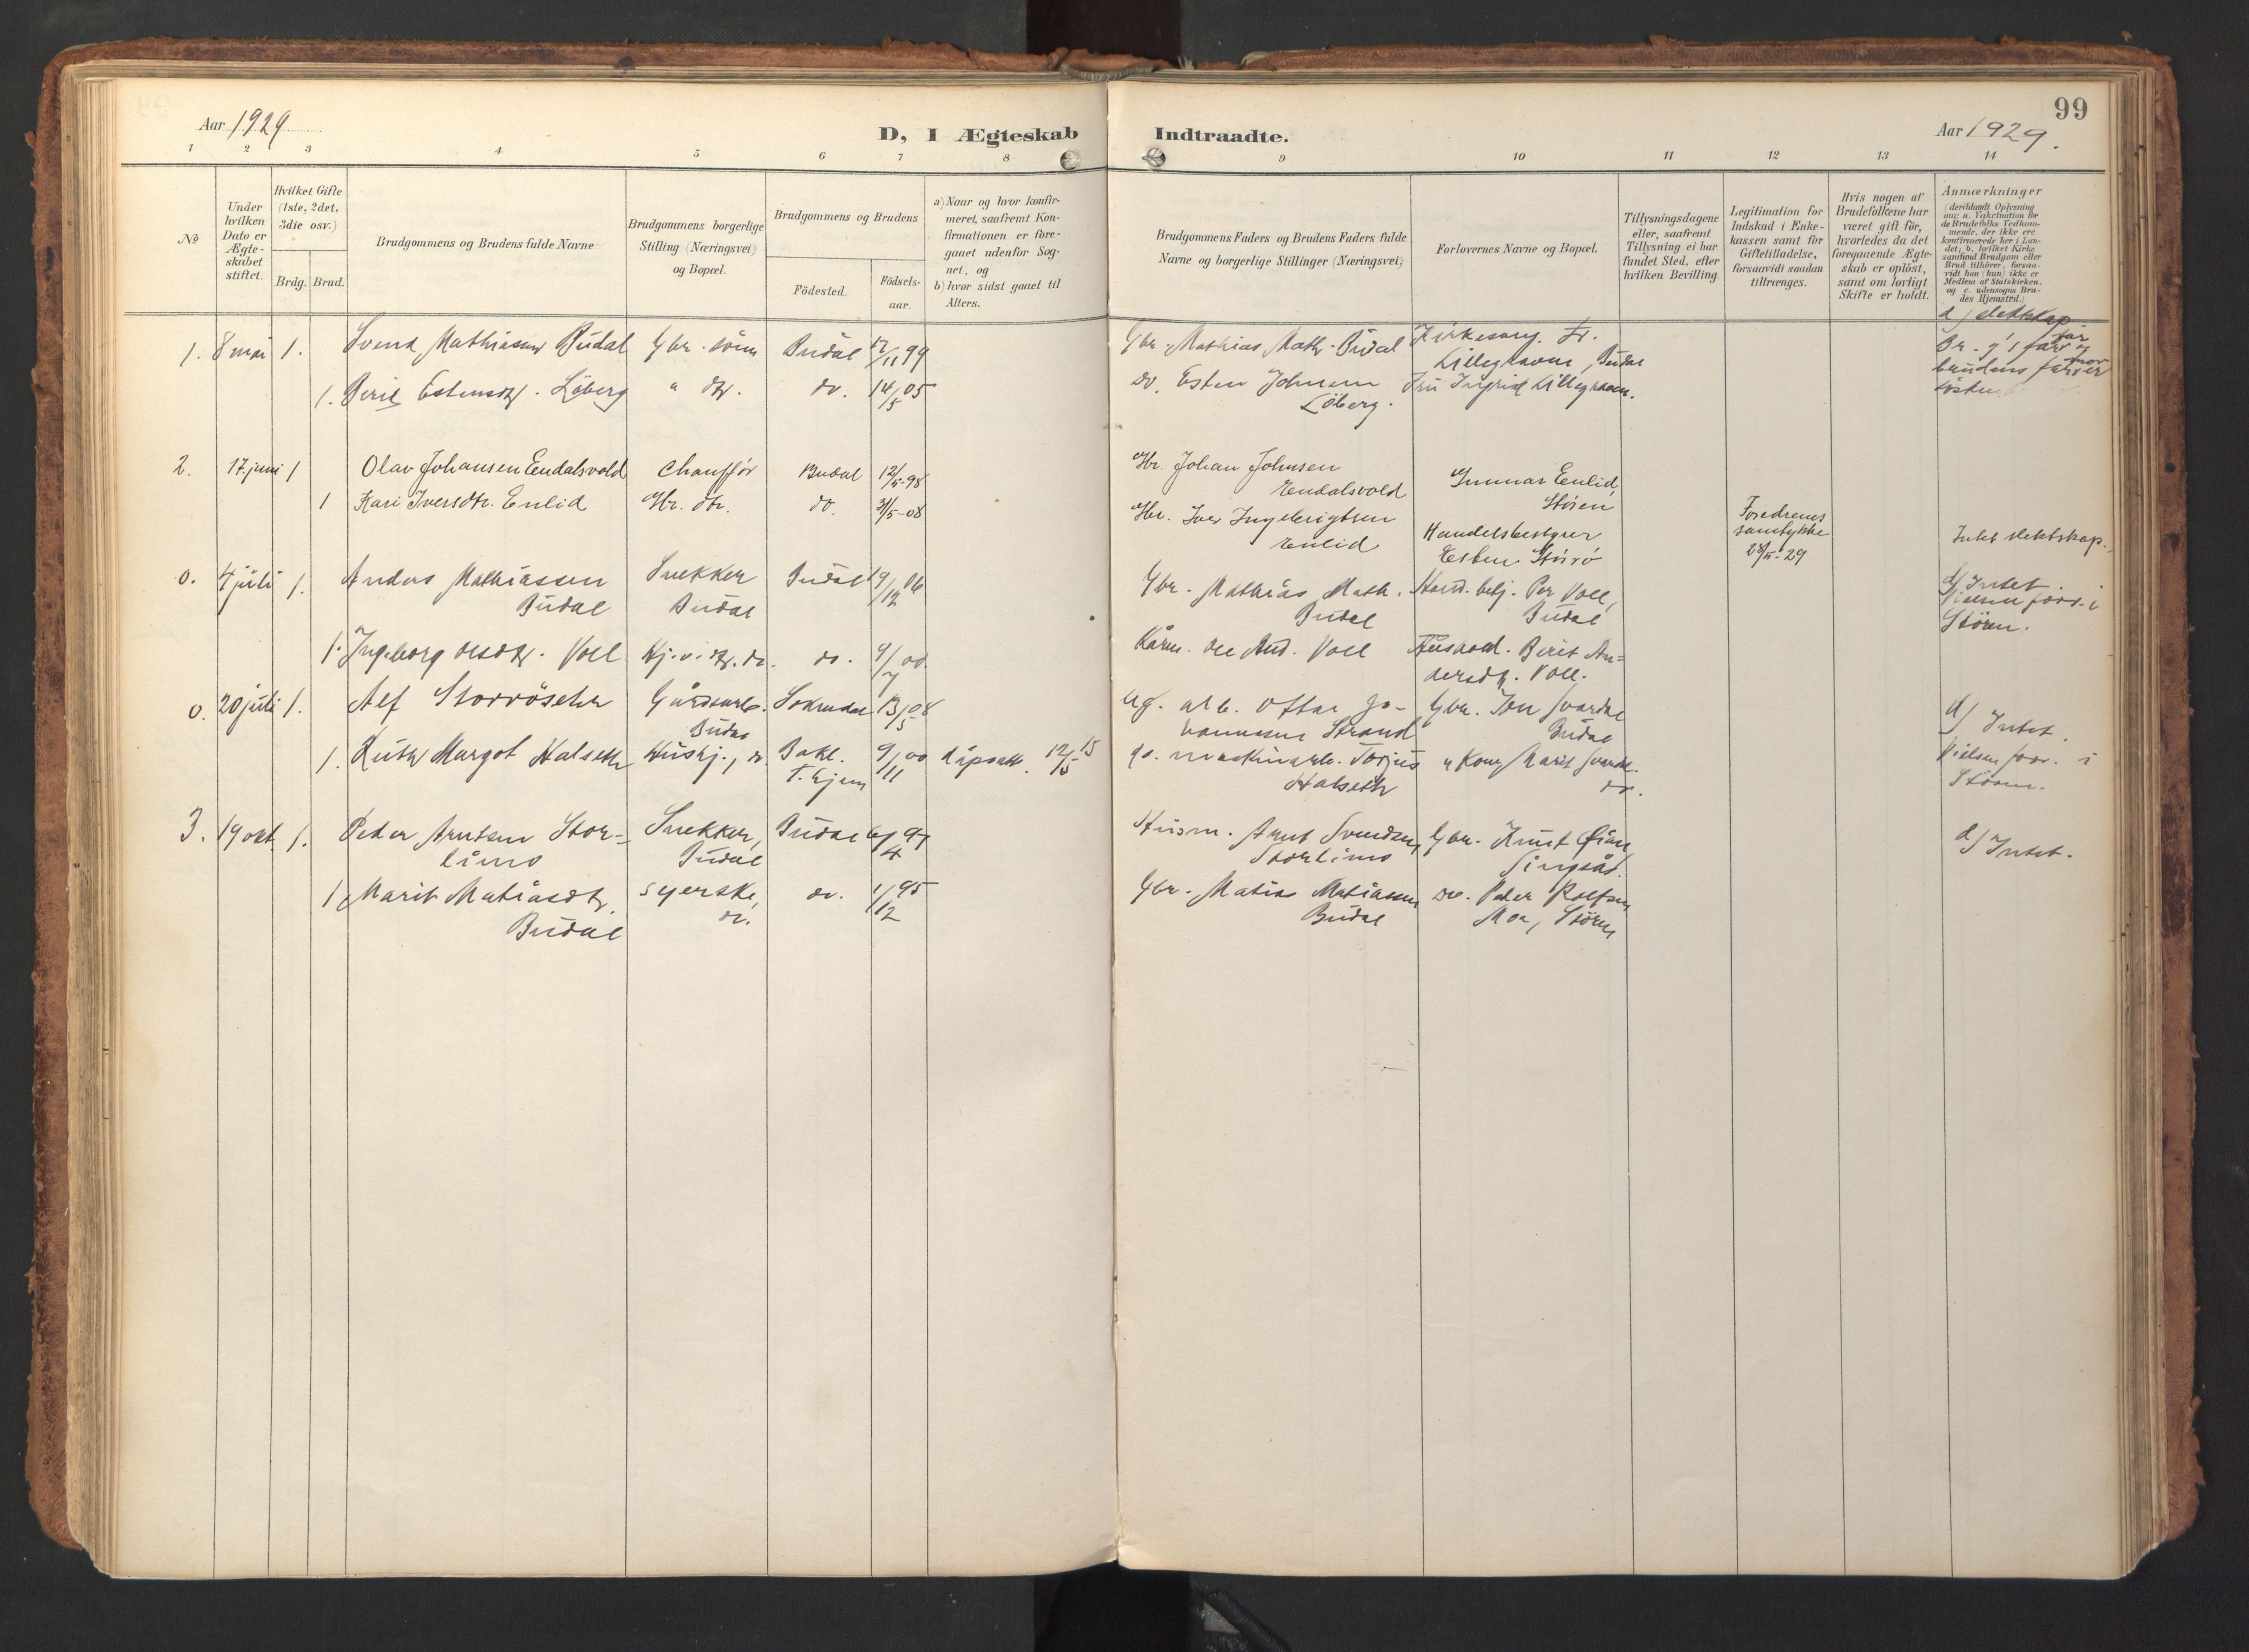 99
Aar 1929
D, I Ægteskab
Indtraadte.
Aar 1929.
1 2 3 4 5 6 7 8
9 10 11 12 13 14
No
Under hvilken Dato er Ægteskabet stiftet.
Hvilket Gifte (1ste, 2det, 3die osv.)
Brdg. Brud.
Brudgommens og Brudens fulde Navne
Brudgommens borgerlige Stilling (Næringsvei) og Bopæl.
Brudgommens og Brudens
Födested.
Födsels-aar.
a) Naar og hvor konfirmeret, saafremt Konfirmationen er foregaaet udenfor Sognet, og
b) hvor sidst gaaet til Alters.
Brudgommens Faders og Brudens Faders fulde Navne og borgerlige Stillinger (Næringsvei)
Forlovernes Navne og Bopæl.
Tillysningsdagene eller, saafremt Tillysning ei har fundet Sted, efter hvilken Bevilling.
Legitimation for Indskud i Enkekassen samt for Giftetilladelse, forsaavidt saadan tiltrænges.
Hvis nogen af Brudefolkene har været gift för, hvorledes da det foregaaende Ægteskab er oplöst, samt om lovligt Skifte er holdt.
Anmærkninger
(deriblandt Oplysning om: a. Vakcination for de Brudefolks Vedkommende, der ikke ere konfirmerede her i Landet; b. hvilket Kirkesamfund Brudgom eller Brud tilhörer, forsaavidt han (hun) ikke er Medlem af Statskirken, og c. udensogns Brudes Hjemsted.)
1. 8 mai 1. Svend Mathiasen Budal Gbr. sönn Budal 12/11 99
Gbr. Mathias Math. Budal
Kirkesang. Fr. Lillegraven, Budal
d) slektskap
Br. g's far og
brudens far er
1. Berit Estensdtr. Löberg " dtr. do. 14/5 05
do. Esten Johnsen
Löberg.
Fru Ingrid Lillegraven.
2. 17. juni 1 Olav Johansen Endalsvold Chauffør Budal 12/5-98
Gbr. Johan Johnsen
Endalsvold
Gunnar Enlid,
Støren
1 Kari Iversdtr. Enlid Gbr. dtr. do. 31/5-08
Gbr. Iver Ingebrigtsen
Enlid
Handelsbestyrer
Esten Störö
Foreldrenes
samtykke
28/5-29
Intet slektskap.
0. 4 juli 1. Anders Mathiassen
Budal
Snekker
Budal
Budal 19/12 06
Gbr. Mathias Math.
Budal
Hand. betj. Per Voll,
Budal
d) Intet.
Vielsen forr. i
Stören.
1. Ingeborg Olsdtr. Voll Hj. v. dtr. do. do. 9/7 00
Kårm. Ole And. Voll
Berit An-
dersdtr. Voll.
0. 20 juli 1. Alf Storröseth Gårdsarb.
Budal
Soknedal 13/5 08
Strand
Gbr. Jon
Budal
d) Intet.
1. Ruth Margot Halseth Hushj., do. Bakl.
T. hjem
9/11 00 12/5 15
do. maskinarb. Torjus
Halseth
" Kone Marit
do.
Vielsen forr. i
Stören.
3. 19 okt. 1. Peder Arntsen Stor-
limo
Snekker,
Budal
Budal 6/4 97
Husm. Arnt Svendsen
Storlimo
Gbr. Knut Öian,
Singsås.
d) Intet.
1 Marit Matiasdtr.
Budal
syerske,
do.
do. 1/12 95
Gbr. Matias Matiassen
Budal
do. Peder Rolfsen
Moe, Stören